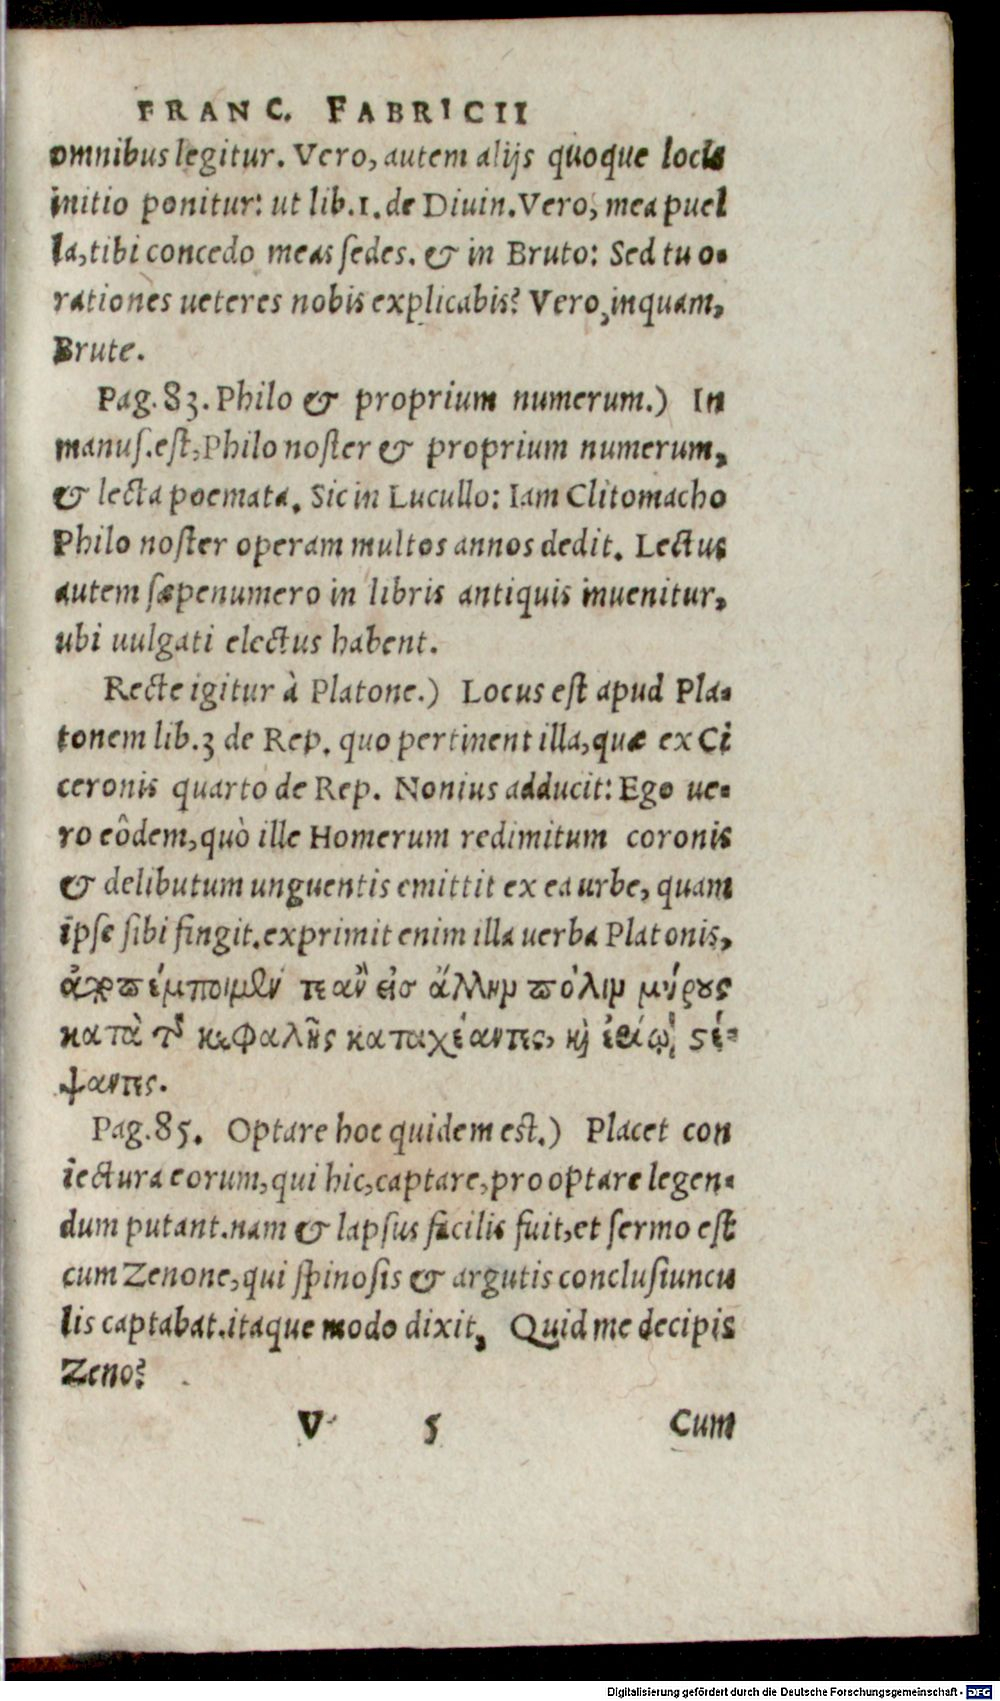 FRANC. FABRICII
omnibus legitur. Vero, autem alijs quoque locis
initio ponitur: ut lib.1. de Diuin. Vero, mea puel
la, tibi concedo meas ſedes. & in Bruto: Sed tu o-
rationes ueteres nobis explicabis? Vero, inquam,
Brute.
Pag. 83. Philo & proprium numerum.) In
manuſ. eſt, Philo noſter & proprium numerum,
& lecta poemata. Sic in Lucullo: Iam Clitomacho
Philo noſter operam multos annos dedit. Lectus
autem ſæpenumero in libris antiquis inuenitur,
ubi uulgati electus habent.
Recte igitur à Platone.) Locus eſt apud Pla-
tonem lib.3 de Rep. quo pertinent illa, quæ ex Ci
ceronis quarto de Rep. Nonius adducit: Ego ue-
ro eôdem, quò ille Homerum redimitum coronis
& delibutum unguentis emittit ex ea urbe, quam
ipſe ſibi fingit. exprimit enim illa uerba Platonis,
τε ἂν εἰσ ἄλλην πόλιν μύρους
κατὰ τ κεφαλῆς καταχέαντες, κὶ ἐρίῳ ςέ-
ψαντες.
Pag. 85. Optare hoc quidem est.) Placet con
iectura eorum, qui hic, captare, pro optare legen-
dum putant. nam & lapſus facilis fuit, et ſermo eſt
cum Zenone, qui ſpinoſis & argutis concluſiuncu
lis captabat. itaque modo dixit, Quid me decipis
Zeno?
V 5 Cum
Digitalisierung gefördert durch die Deutsche Forschungsgemeinschaft - DFG